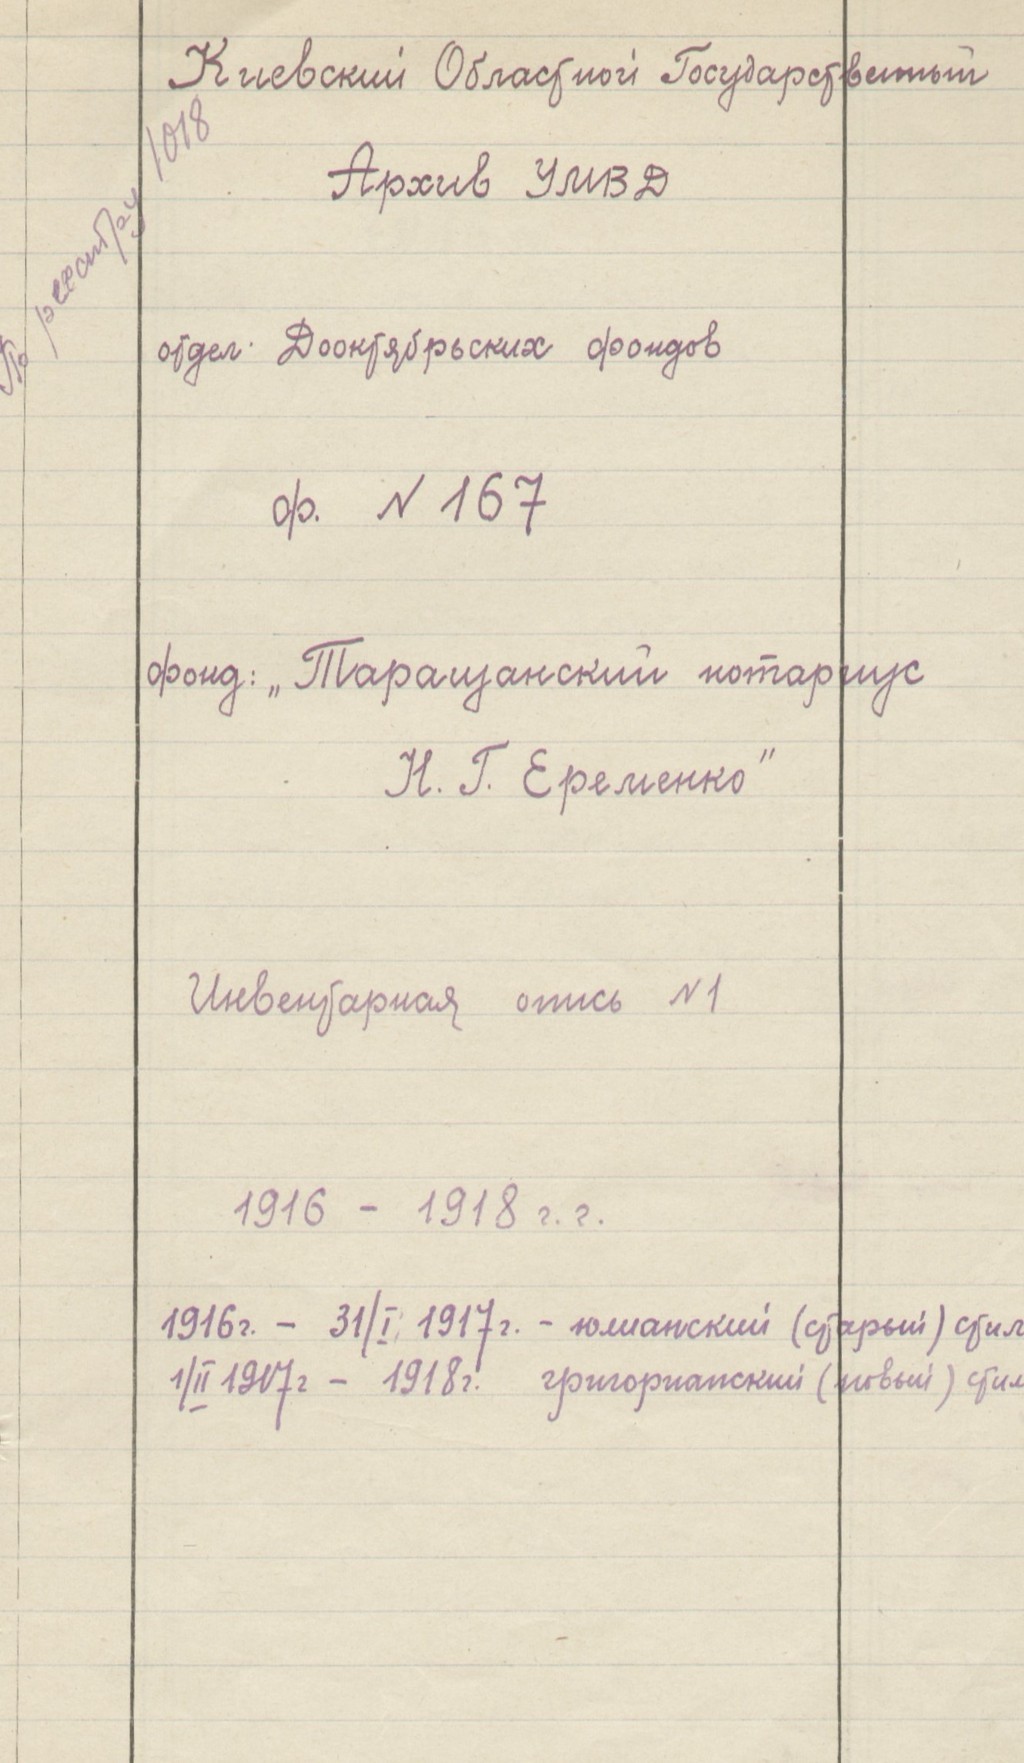 Киевский Областной Государственный
Архив УМВД
По реестру 1018
отдел. Дооктябрьских фондов
ф. N 167
фонд: „Таращанский нотариус
Н. Г. Еременко"
Инвентарная опись N 1
1916 - 1918 г. г.
1916г. - 31/I 1917г. - юлианский (старый) стил
1/II 1917г - 1918г. григорианский (новый) стил